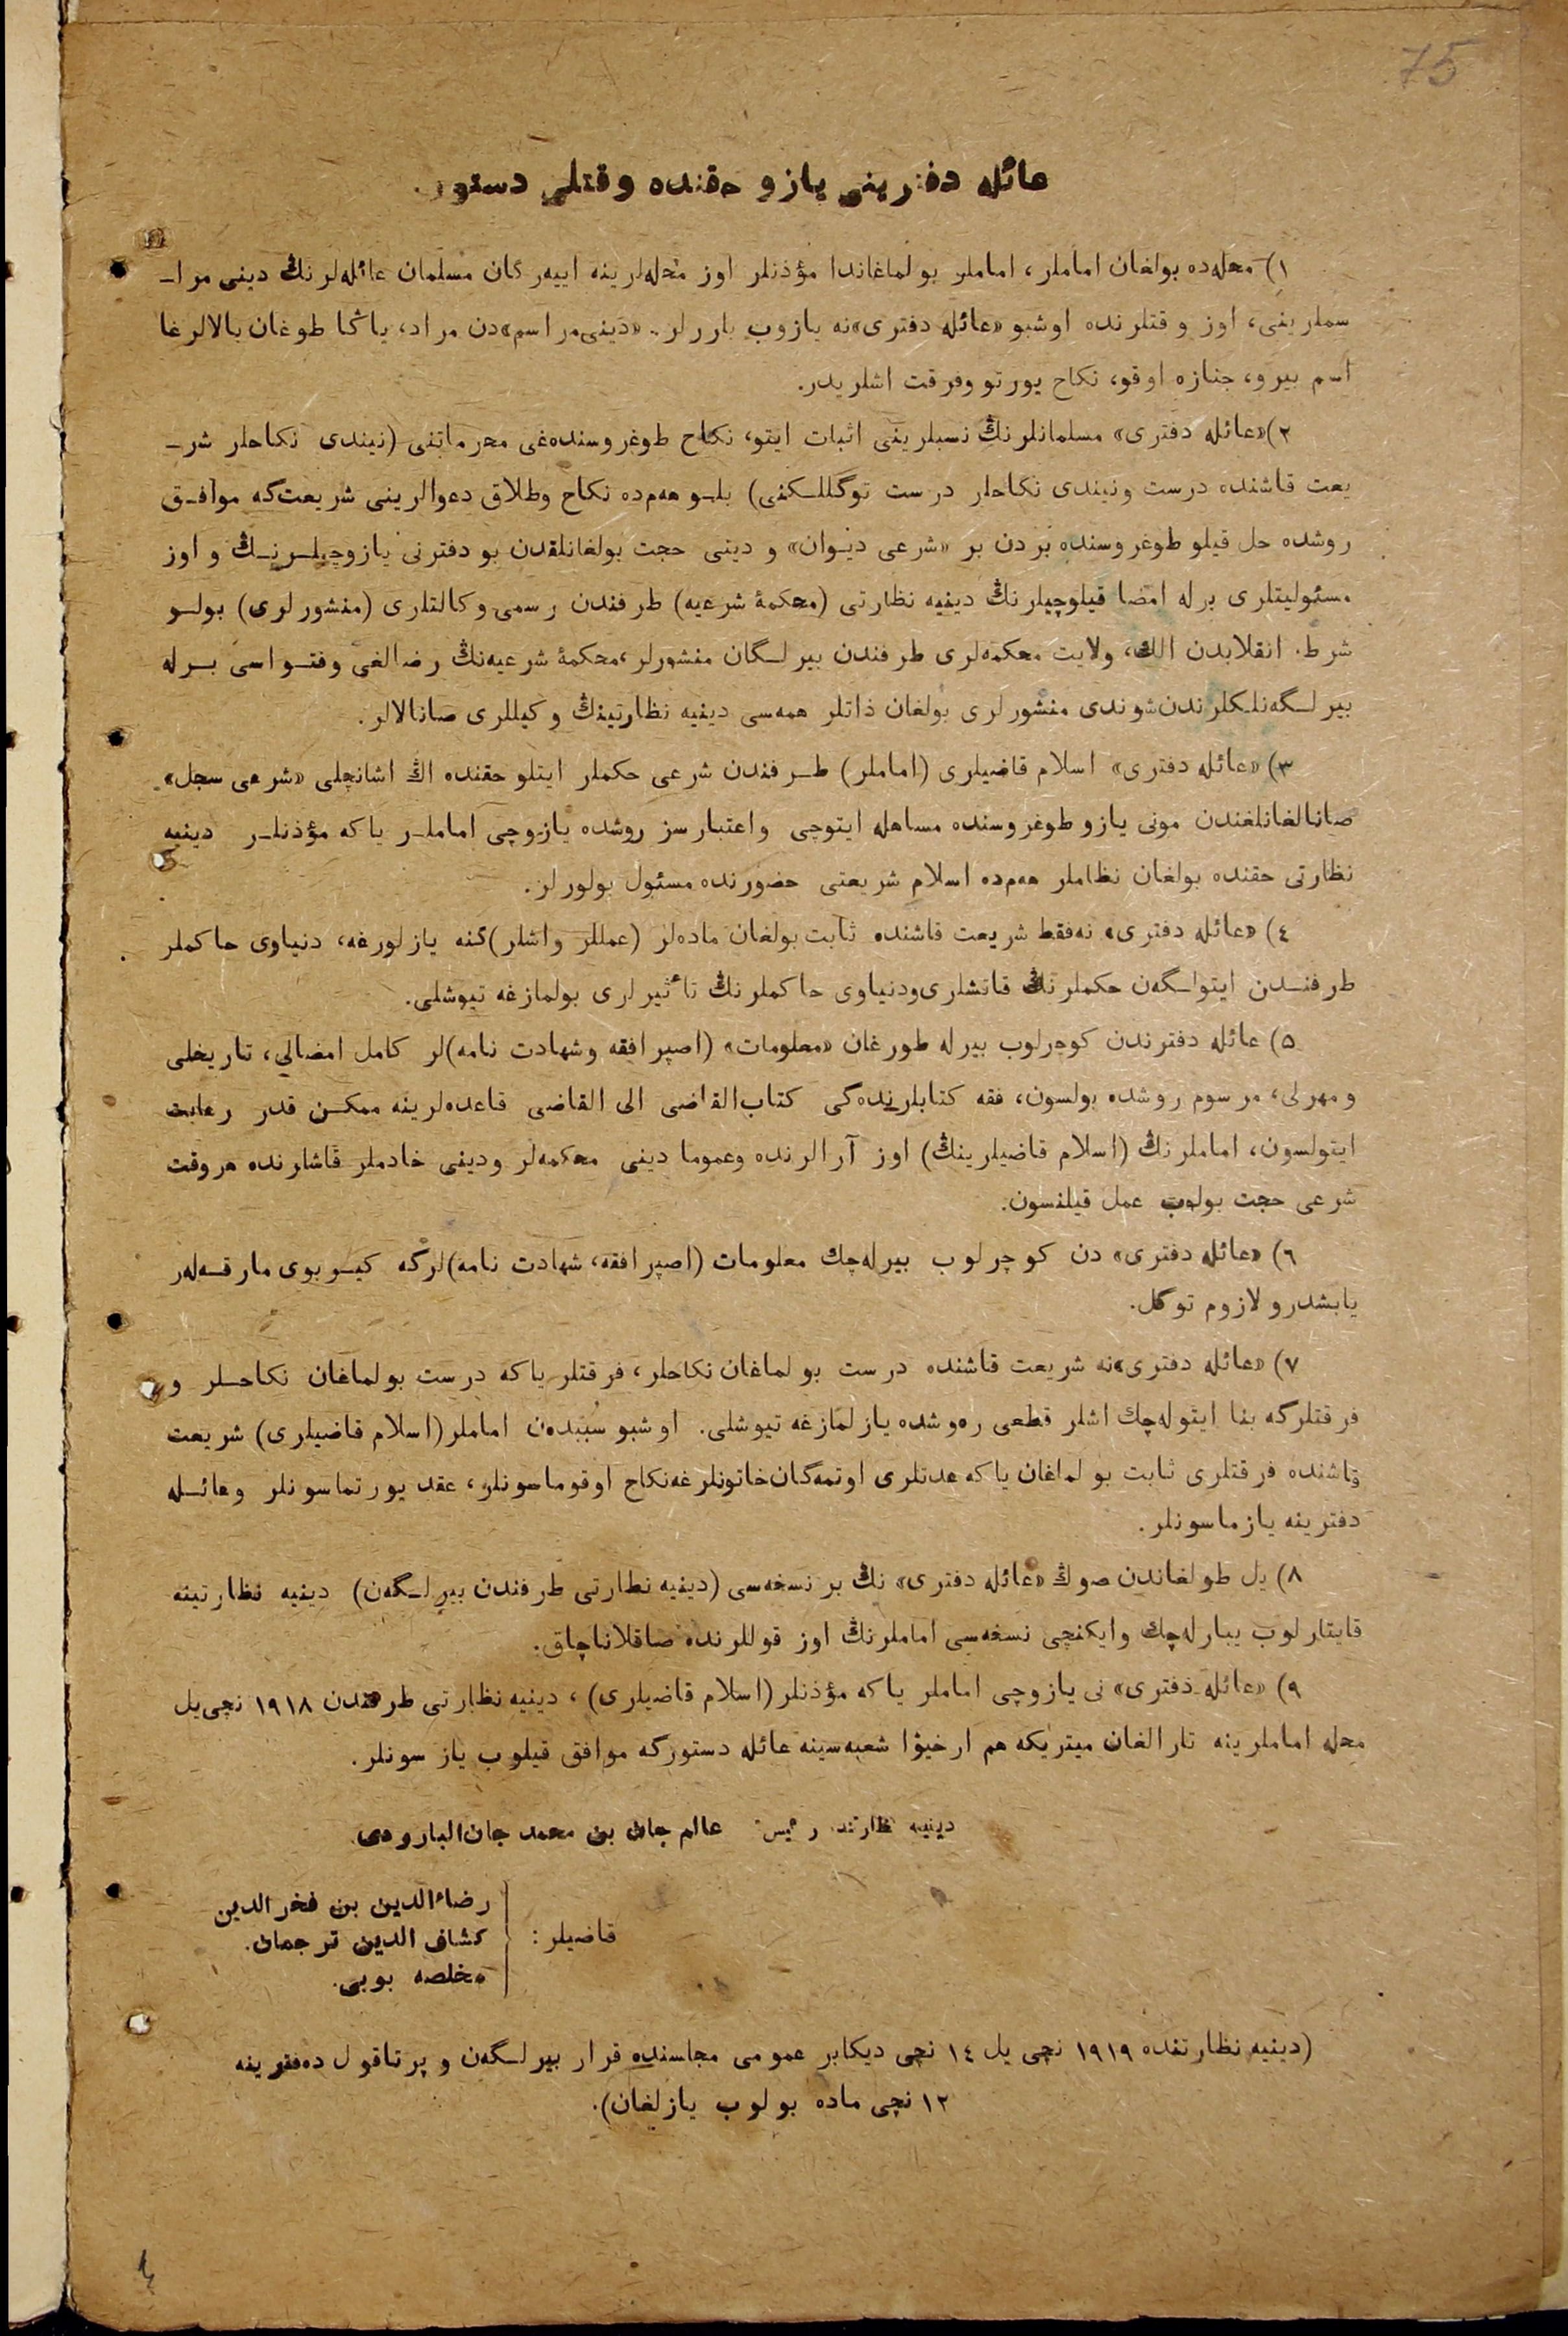 75
عائله دفترینی یازو حقنده وقتلی دستور.
١) محله‌ده بولغان اماملر، اماملر بولماغاندا مؤذنلر اوز محله‌لرینه اییه‌رگان مسلمان عائله‌لرنڭ دینی مرا‌ـ
سملرینی، اوز وقتلرنده اوشبو «عائله دفتری»نه یازوب باررلر. «دینی مراسم»دن مراد، یاڭا طوغان بالالرغا
اسم بیرو، جنازه اوقو، نکاح یورتو وفرقت اشلریدر.
٢) «عائله دفتری» مسلمانلرنڭ نسبلرینی اثبات ایتو، نکاح طوغروسنده‌غی محرماتنی (نیندی نکاحلر شرـ
یعت قاشنده درست ونیندی نکاحلر درست توگللـکنی) بلـو هم‌ده نکاح وطلاق دعوالرینی شریعت‌گه موافـق
روشده حل قیلو طوغروسنده بردن بر «شرعی دیـوان» و دینی حجت بولغانلقدن بو دفترنی یازوچیلـرنـڭ و اوز
مسئولیتلری برله امضا قیلوچیلرنڭ دینیه نظارتی (محکمۀ شرعیه) طرفندن رسمی وکالتلری (منشورلری) بولـو
شرط. انقلابدن الڭ، ولایت محکمه‌لری طرفندن بیرلـگان منشورلر، محکمۀ شرعیه‌نڭ رضالغی وفتـواسی بـرله
بیرلـگه‌نلـکلرندن شوندی منشورلری بولغان ذاتلر همه‌سی دینیه نظارتینڭ وکیللری صانالالر.
٣) «عائله دفتری» اسلام قاضیلری (اماملر) طـرفندن شرعی حکملر ایتلو حقنده اڭ اشانچلی «شرعی سجل»
صانالغانلغندن مونی یازو طوغروسنده مساهله ایتوچی واعتبارسز روشده یازوچی اماملـر یاکه مؤذنلـر دینیه
نظارتی حقنده بولغان نظاملر هم‌ده اسلام شریعتی حضورنده مسئول بولورلر.
٤) «عائله دفتری» نه‌فقط شریعت قاشنده ثابت بولغان ماده‌لر (عمللر واشلر)گنه یازلورغه، دنیاوی حاکملر
طرفنـدن ایتولـگه‌ن حکملرنڭ قاتشلری ودنیاوی حاکملرنڭ تأثیرلری بولمازغه تیوشلی.
٥) عائله دفترندن کوچرلوب بیرله طورغان «معلومات» (اصپرافقه وشهادت نامه)لر کامل امضالي، تاریخلی
ومهرلی، مرسوم روشده بولسون، فقه کتابلرنده‌گی کتاب‌القاضی الی القاضی قاعده‌لرینه ممکـن قدر رعایت
ایتولسون، اماملرنڭ (اسلام قاضیلرینڭ) اوز آرالرنده وعموما دینی محکمه‌لر ودینی خادملر قاشلرنده هروقت
شرعی حجت بولوب عمل قیلنسون.
٦) «عائله دفتری» دن کوچرلوب بیرله‌چك معلومات (اصپرافقه، شهادت نامه)لرگه کیـربوی مارقـه‌لر
یابشدرو لازوم توگل.
٧) «عائله دفتری»نه شریعت قاشنده درست بولماغان نکاحلر، فرقتلر یاکه درست بولماغان نکاحـلر و
فرقتلرگه بنا ایتوله‌چك اشلر قطعی ره‌وشده یازلمازغه تیوشلی. اوشبو سببده‌ن اماملر (اسلام قاضیلری) شریعت
قاشنده فرقتلری ثابت بولماغان یاکه عدتلری اوتمه‌گان خاتونلرغه نکاح اوقوماسونلر، عقد یورتماسونلر وعائـله
دفترینه یازماسونلر.
٨) یل طولغاندن صوڭ «عائله دفتری» نڭ بر نسخه‌سی (دینیه نظارتی طرفندن بیرلـگه‌ن) دینیه نظارتینه
قایتارلوب یبارله‌چك وایکنچی نسخه‌سی اماملرنڭ اوز قوللرنده صاقلاناچاق.
٩) «عائله دفتری» نی یازوچی اماملر یاکه مؤذنلر (اسلام قاضیلری)، دینیه نظارتی طرفندن ١٩١٨ نچی یل
محله اماملرینه تارالغان میتریکه هم ارخیوا شعبه‌سینه عائله دستورگه موافق قیلوب یازسونلر.
دینیه نظارتی رئیسی عالم جان بن محمد جان البارودی.
قاضیلر:
رضاءالدین بن فخرالدین
کشاف الدین ترجمان.
مخلصه بوبی.
(دینیه نظارتنده ١٩١٩ نچی یل ١٤ نچی دیکابر عمومی مجلسنده قرار بیرلـگه‌ن و پرتاقول ده‌فترینه
١٢ نچی ماده بولوب یازلغان).